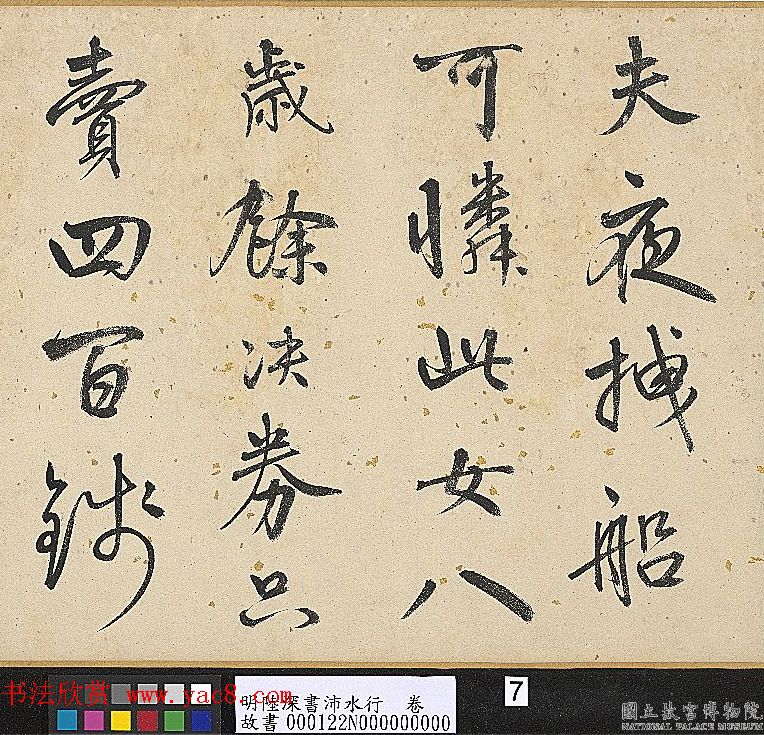 夫夜捕船
可憐此女八
歲餘決券只
賣四百錢
書法欣赏 www.yac8.com
明陸深書沛水行 卷
故書000122N000000000
7
國立故宮博物院
NATIONAL PALACE MUSEUM